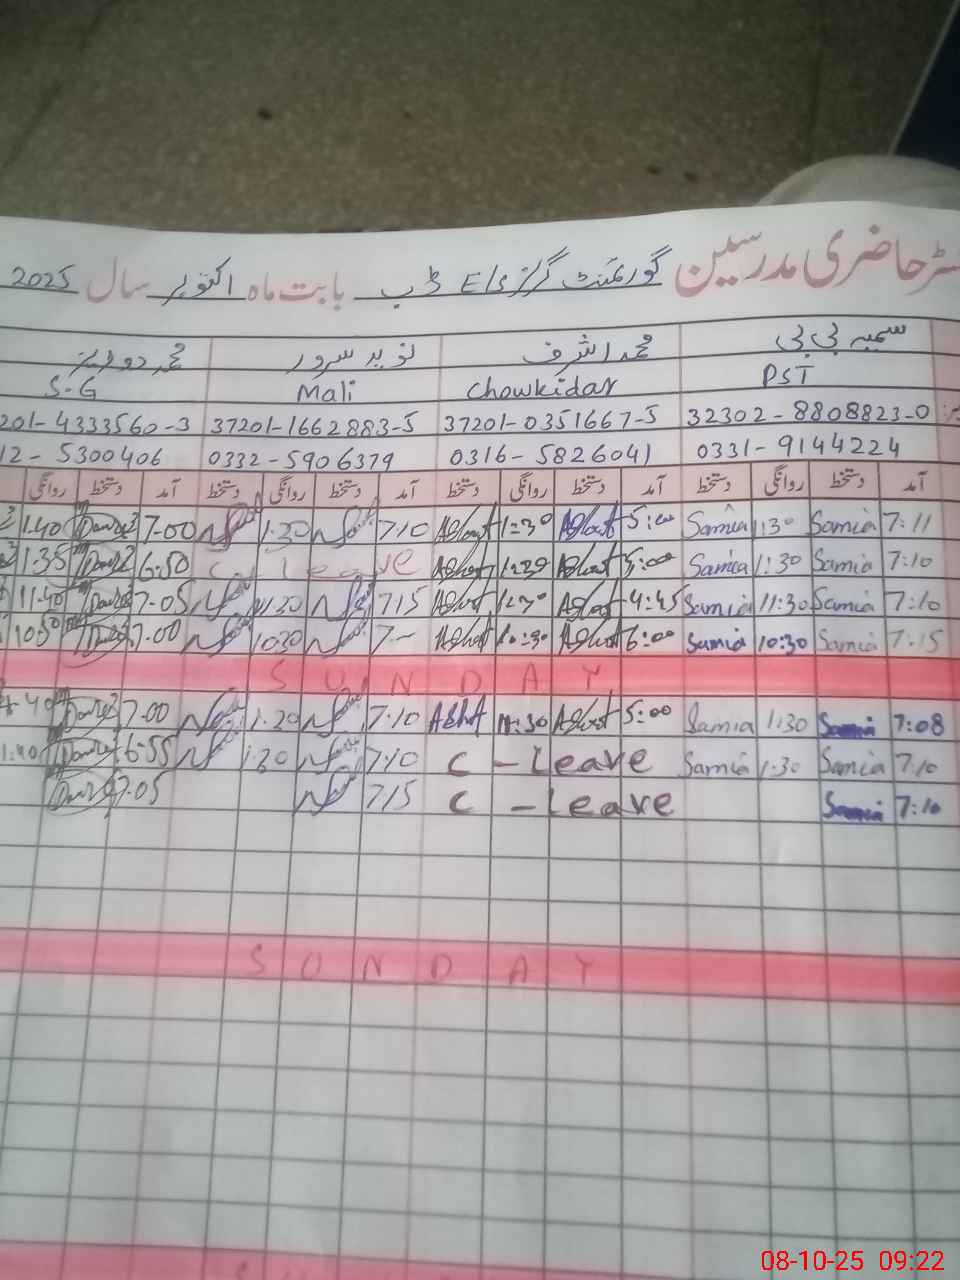 رجسٹر حاضری مدرسین گورنمنٹ گرلز E/S ڈب بابت ماہ اکتوبر سال 2025
سمیہ بی بی محمد اشرف نوید سرور محمد
PST Chowkidar Mali S-G
32302-8808823-0 37201-0351667-5 37201-1662883-5 201-4333560-3
0331-9144224 0316-5826041 0332-5906379 12-5300406
آمد دستخط روانگی دستخط آمد دستخط روانگی دستخط آمد دستخط روانگی دستخط آمد دستخط روانگی
7:11 Samia 1:30 Samia 5:00 Ashraf 1:30 Ashraf 7:10 1:20 7-00 1.40
7:10 Samia 1:30 Samia 5:00 Ashraf 1:30 Ashraf C Leave 6-50 1.35
7:10 Samia 11:30 Samia 4:45 Ashraf Ashraf 715 11:20 7-05 11.40
7:15 Samia 10:30 Samia 6:00 Ashraf 10:30 Ashraf 7- 10:30 7-00
SUNDAY
7:08 Samia 1:30 Samia 5:00 Ashraf Ashraf 7:10 1:20 7-00
7:10 Samia 1:30 Samia C - Leave 7:10 1:20 6-55 1:40
7:10 Samia C - Leave 715 7-05
SUNDAY
08-10-25 09:22